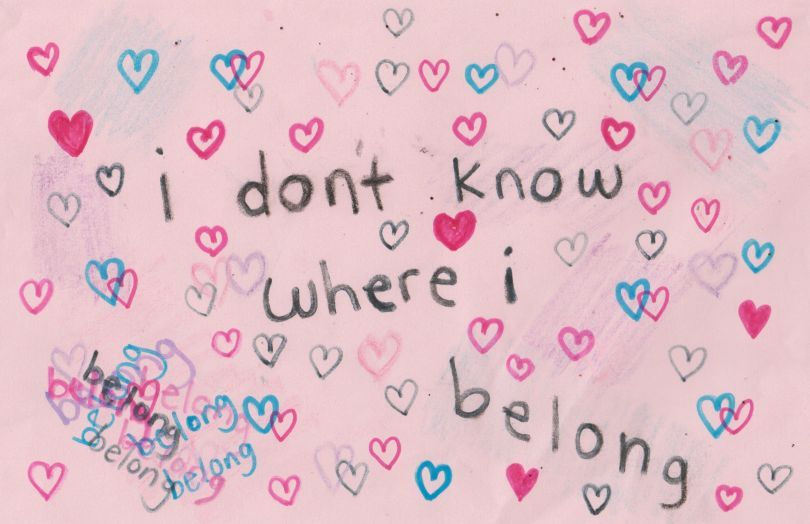 i don't know
where i
belong
belong
belong
belong
belong
belong
belong